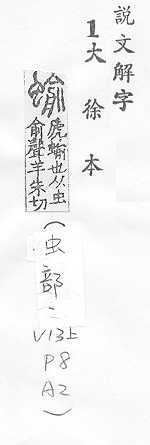 說文解字
1大徐本
蝓
虒蝓也从虫
俞聲羊朱切
(虫部二
V13上
P8
A2)